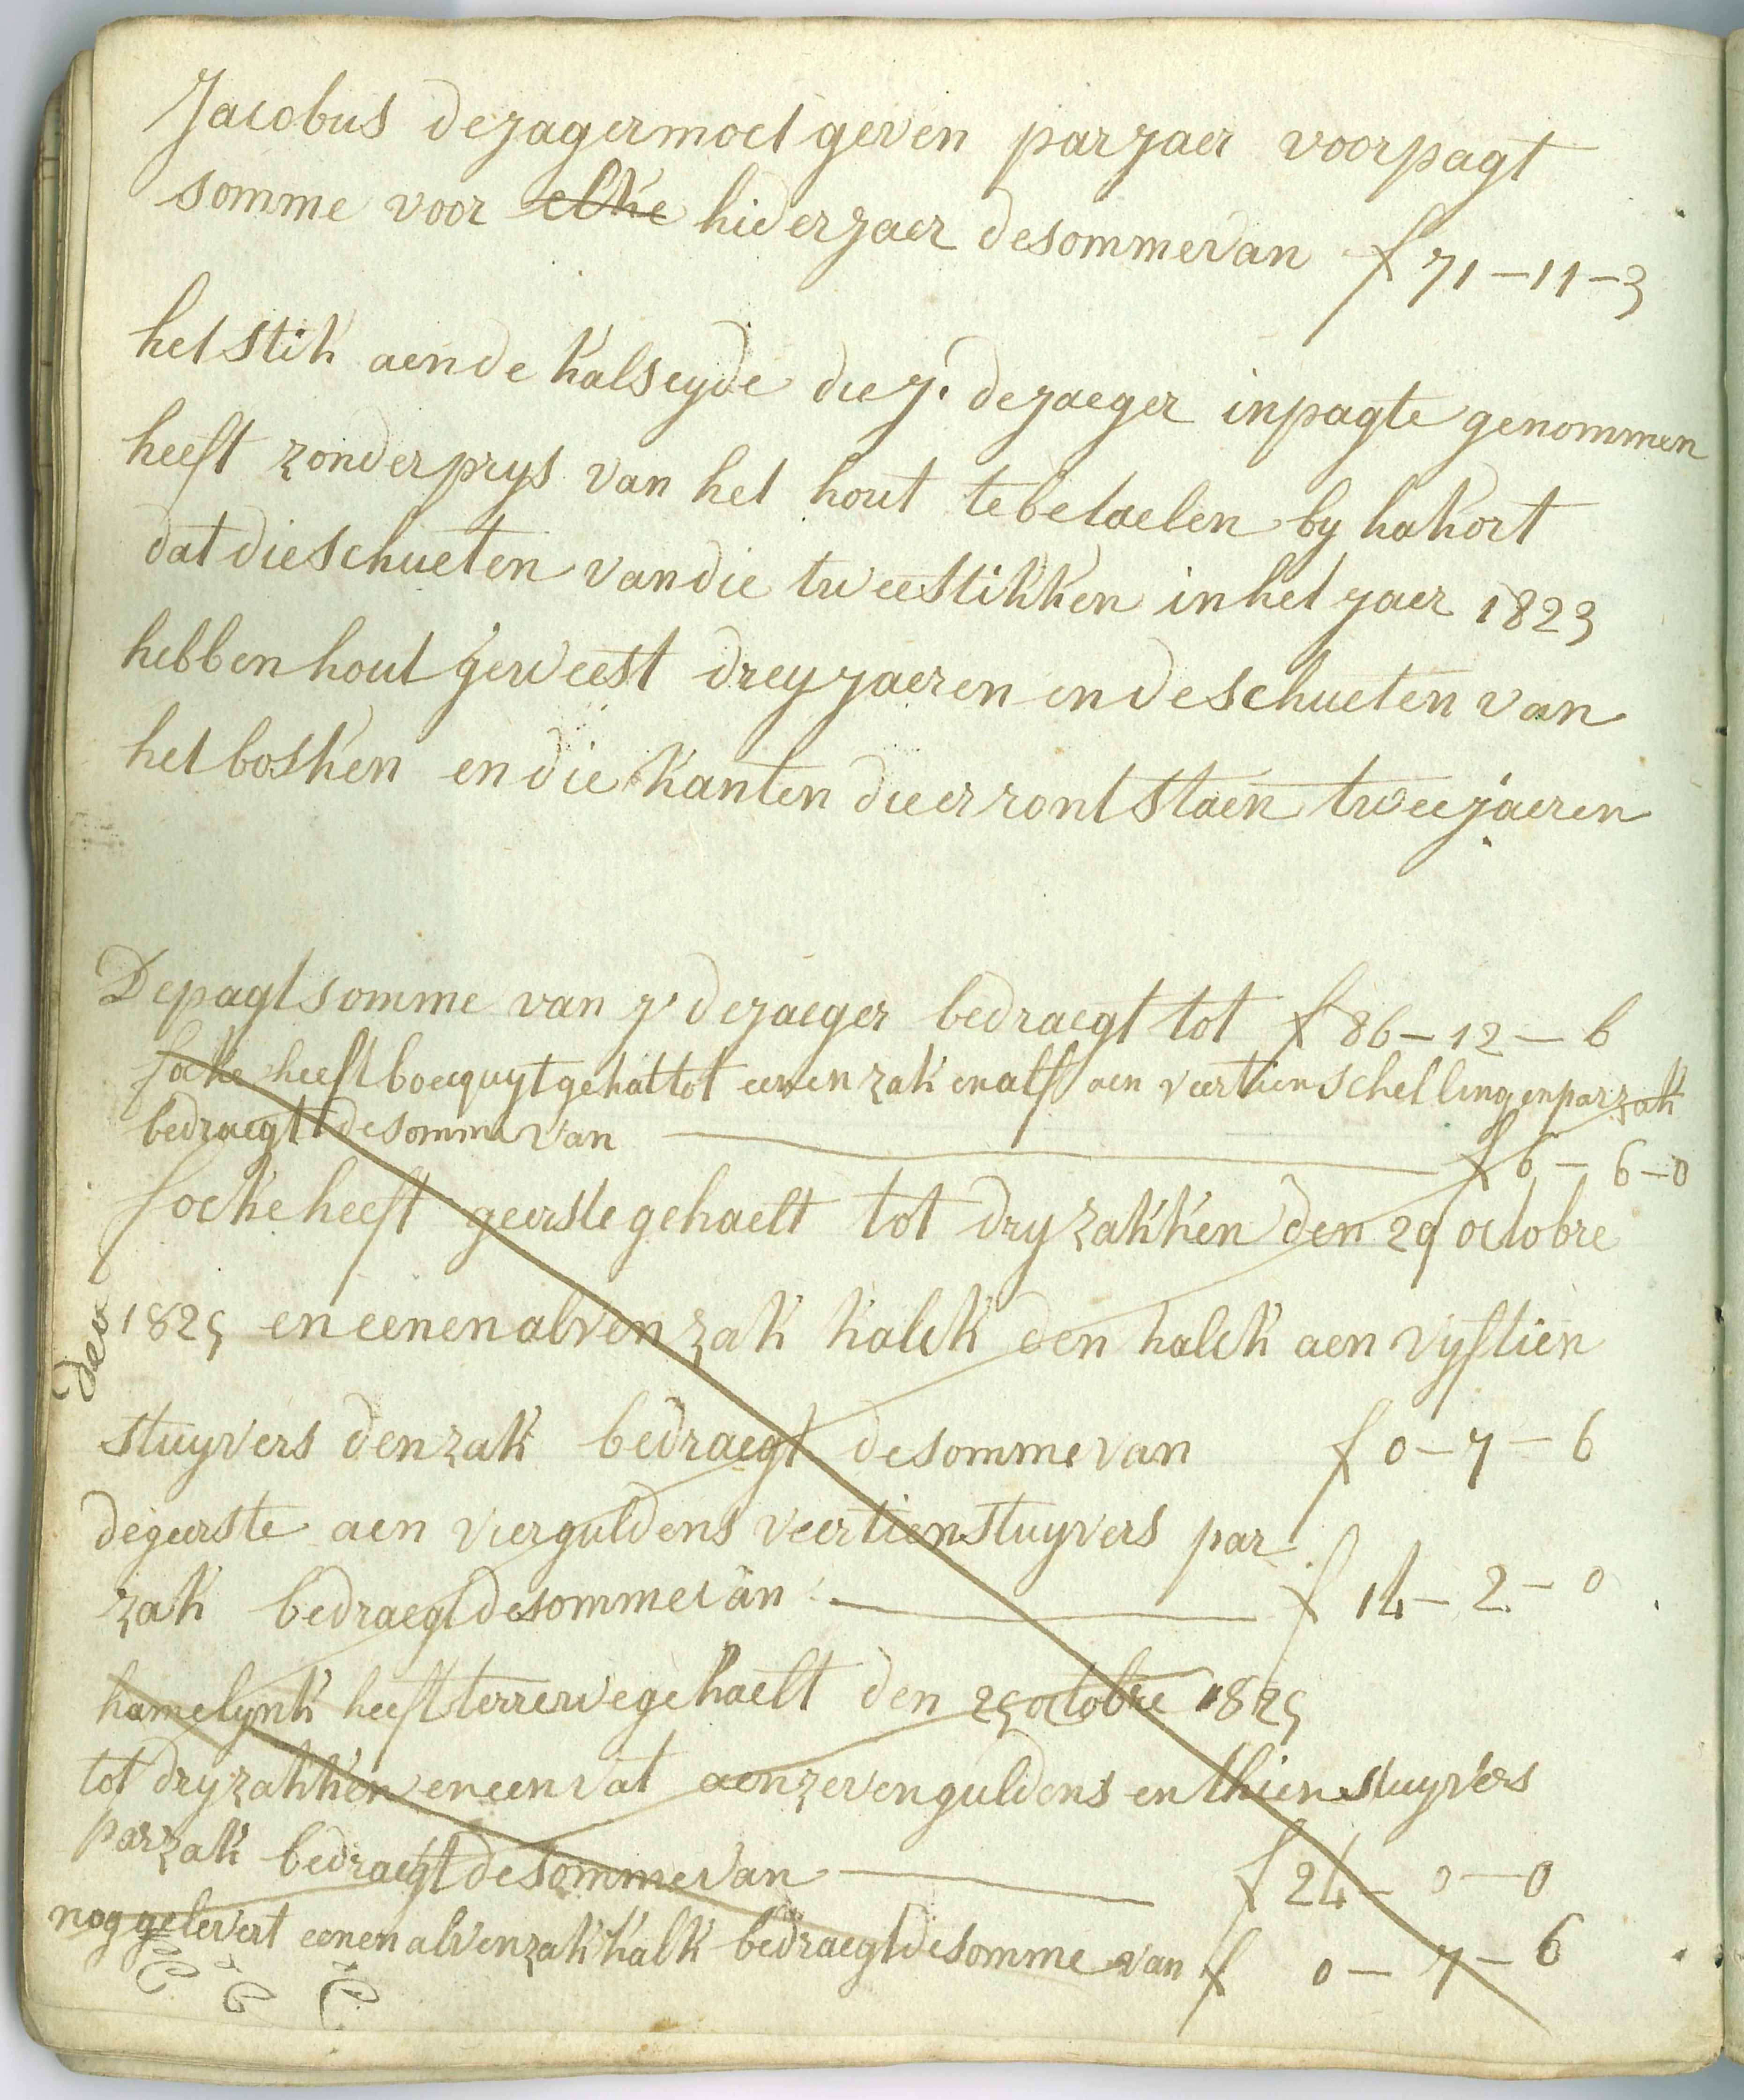 Jacobus dezagermoet geven parjaer voorpagt
somme voor elke hiderjaer desommevan f 71-11-3
het stik aende kalseyde die j. dejaeger inpagte genommen
heeft zonderprys van het hout tebetaelen by hakort
dat dieschueten vandie tweestikken inhet jaer 1823
hebbenhout geweest dreyjaeren endeschueten van
hetbosken endie kanten dieerrontstaen tweejaeren
Depagtsomme van j. dejaeger bedraegt tot f 86-12-6
focke heeft boequytgehat tot eenen zak enalf aen veertienschellingenparzak
bedraegt desommevan f 6-6-0
focke heeft geerstegehaelt tot dryzakken den 29 octobre
1825 eneenenalven zak kalck den kalck aen vyftien
stuyvers denzak bedraegt desommevan f 0-7-6
degeerste aen vierguldens veertienstuyvers par
zak bedraegtdesommevan f 14-2-0
hamelynk heeftterrewegehaelt den 25octobre 1825
tot dryzakken eneenvat aenzevenguldens enthienstuyvers
parzak bedraegtdesommevan f 24-0-0
noggelevert eenenalvenzakkalk bedraegtdesomme van f 0-7-6